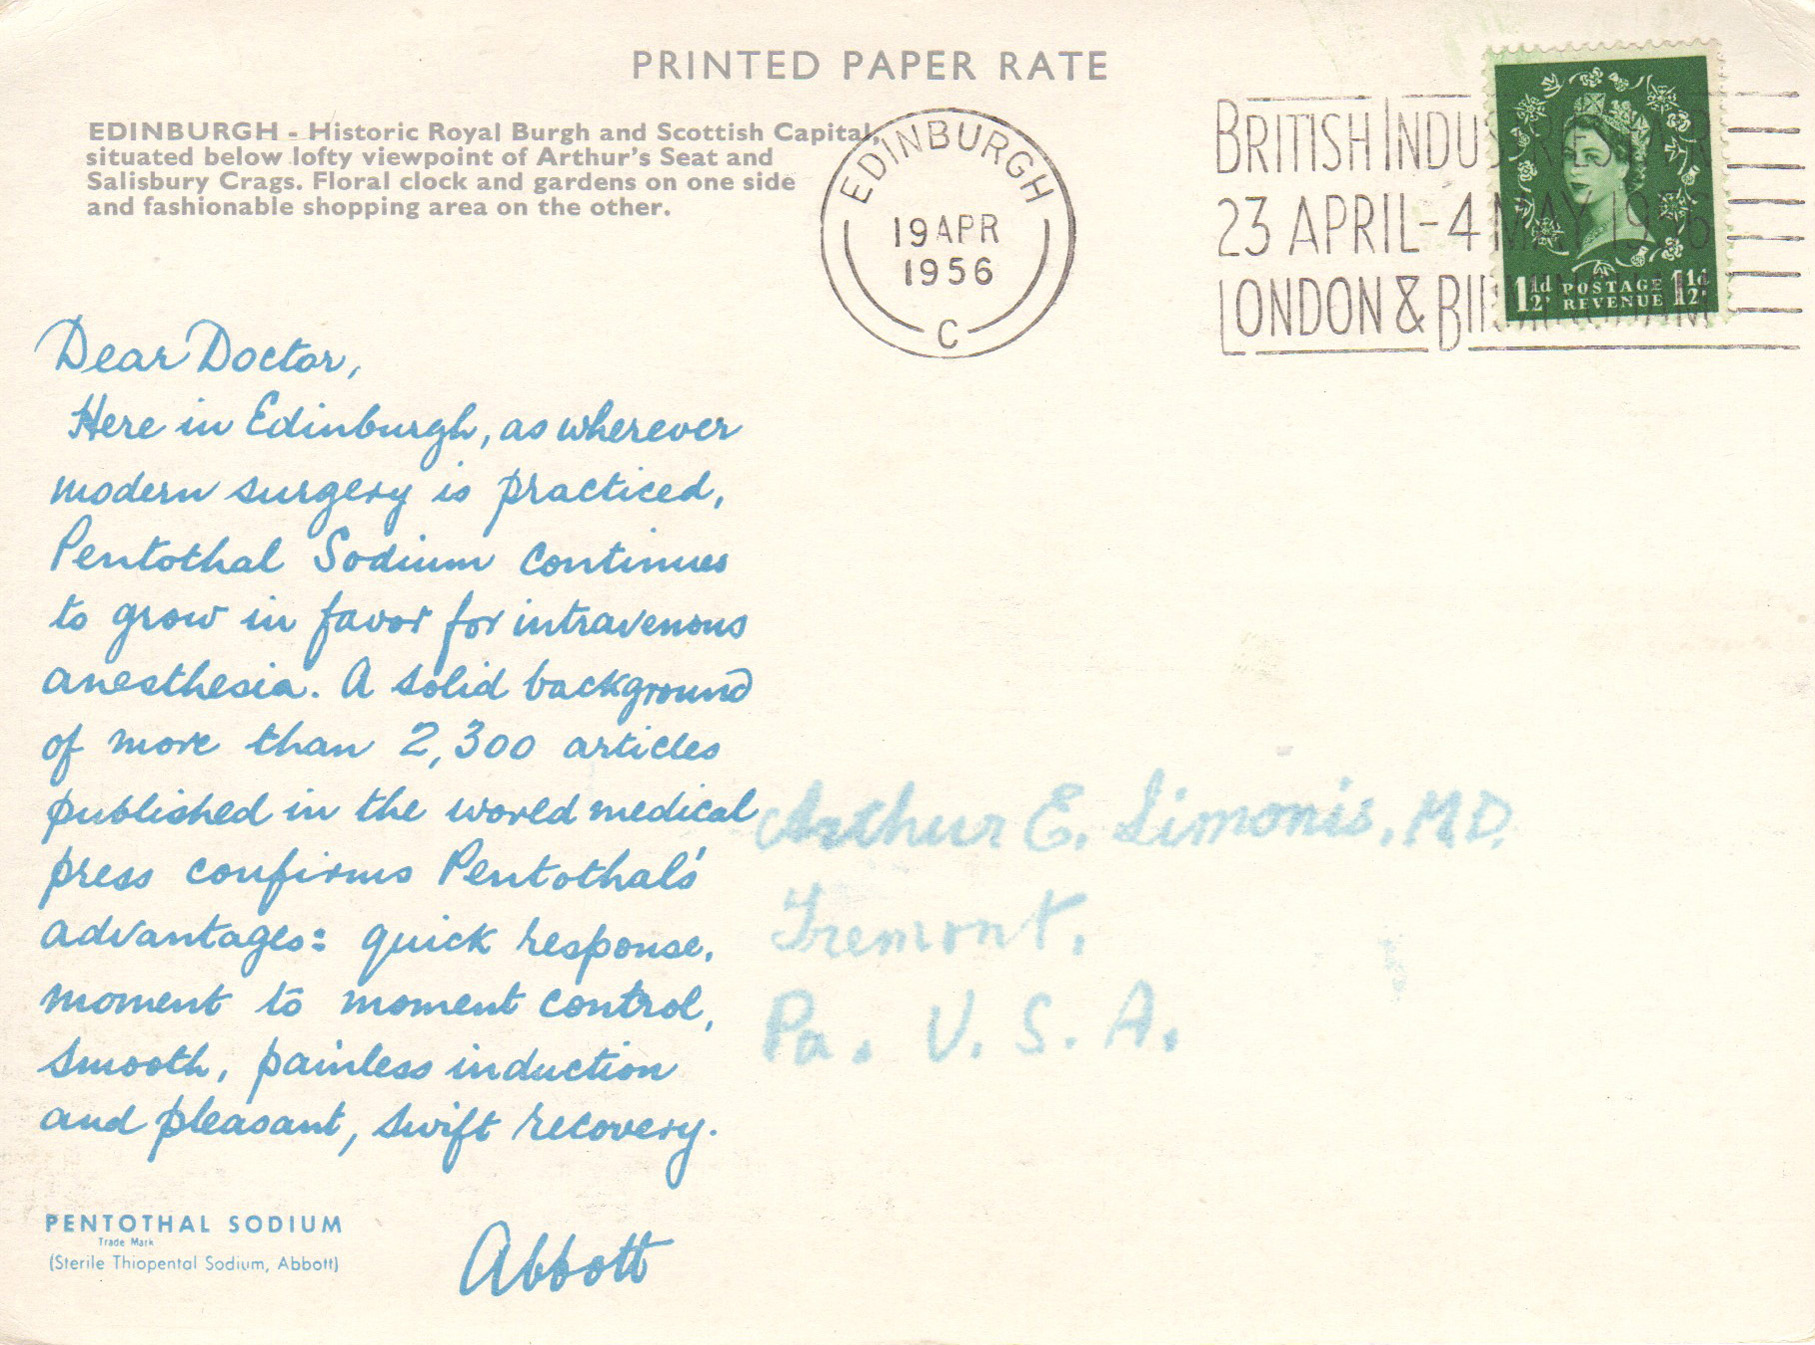 PRINTED PAPER RATE
EDINBURGH - Historic Royal Burgh and Scottish Capital,
situated below lofty viewpoint of Arthur's Seat and
Salisbury Crags. Floral clock and gardens on one side
and fashionable shopping area on the other.
EDINBURGH
19 APR
1956
C
BRITISH INDUSTRIES FAIR
23 APRIL-4 MAY 1956
LONDON & BIRMINGHAM
1½d POSTAGE 1½d
REVENUE
Dear Doctor,
Here in Edinburgh, as wherever
modern surgery is practiced,
Pentothal Sodium continues
to grow in favor for intravenous
anesthesia. A solid background
of more than 2,300 articles
published in the world medical
press confirms Pentothal's
advantages: quick response,
moment to moment control,
smooth, painless induction
and pleasant, swift recovery.
Abbott
PENTOTHAL SODIUM
Trade Mark
(Sterile Thiopental Sodium, Abbott)
Arthur E. Simonis, M.D.
Tremont,
Pa. U.S.A.